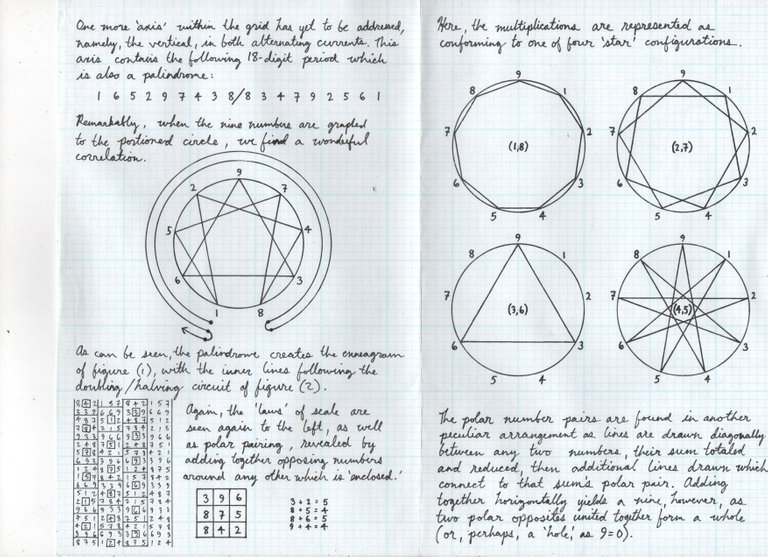 One more 'axis' within the grid has yet to be addressed,
namely, the vertical, in both alternating currents. This
axis contains the following 18-digit period which
is also a palindrome:
1 6 5 2 9 7 4 3 8/8 3 4 7 9 2 5 6 1
Remarkably, when the nine numbers are graphed
to the portioned circle, we find a wonderful
correlation.
9
2 7
5 4
6 3
1 8
As can be seen, the palindrome creates the enneagram
of figure (1), with the inner lines following the
doubling/halving circuit of figure (2).
Again, the 'laws' of scale are
seen again to the left, as well
as polar pairing, revealed by
adding together opposing numbers
around any other which is enclosed.'
3 9 6
8 7 5
8 4 2
3+2=5
8+5=4
8+6=5
9+4=4
Here, the multiplications are represented as
conforming to one of four 'star' configurations.
9
8 1
7 (1,8) 2
6 3
5 4
9
8 1
7 (2,7) 2
6 3
5 4
9
8 1
7 (3,6) 2
6 3
5 4
9
8 1
7 (4,5) 2
6 3
5 4
The polar number pairs are found in another
peculiar arrangement as lines are drawn diagonally
between any two numbers, their sum totaled
and reduced, then additional lines drawn which
connect to that sum's polar pair. Adding
together horizontally yields a nine, however, as
two polar opposites united together form a whole
(or, perhaps, a 'hole', as 9=0).